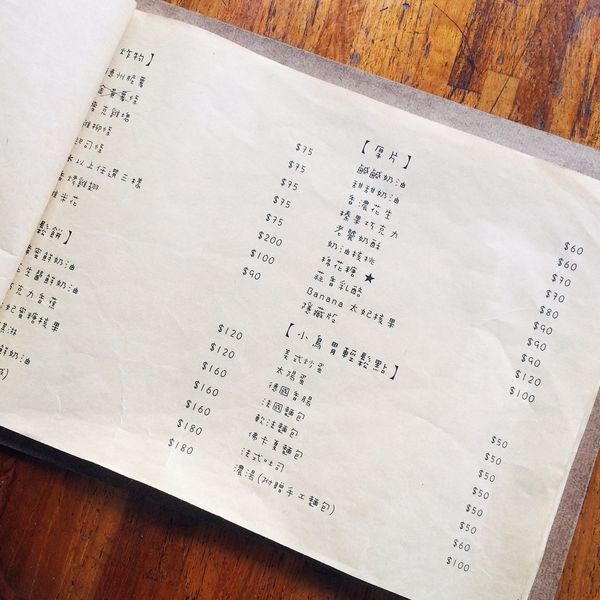 炸物】
德州脆薯 $75
薯條 $75
麥克雞塊 $75
雞柳條 $75
起司條 $75
以上任選三樣 $200
香烤雞翅 $100
雞米花 $90
鬆餅】
蜜鮮奶油 $120
生醬鮮奶油 $120
克力香蕉 $160
妃蜜糖核果 $160
淇淋 $160
鮮奶油 $180
$180
【厚片】
鹹鹹奶油 $60
甜甜奶油 $60
香濃花生 $70
榛果巧克力 $70
老饕奶酥 $80
奶油核桃 $90
棉花糖 ★ $90
蒜香乳酪 $90
Banana 太妃核果 $120
隱藏版 $100
【小鳥胃輕鬆點】
美式炒蛋 $50
太陽蛋 $50
德國香腸 $50
法國麵包 $50
軟法麵包 $50
佛卡夏麵包 $50
法式吐司 $60
濃湯(附贈手工麵包) $100